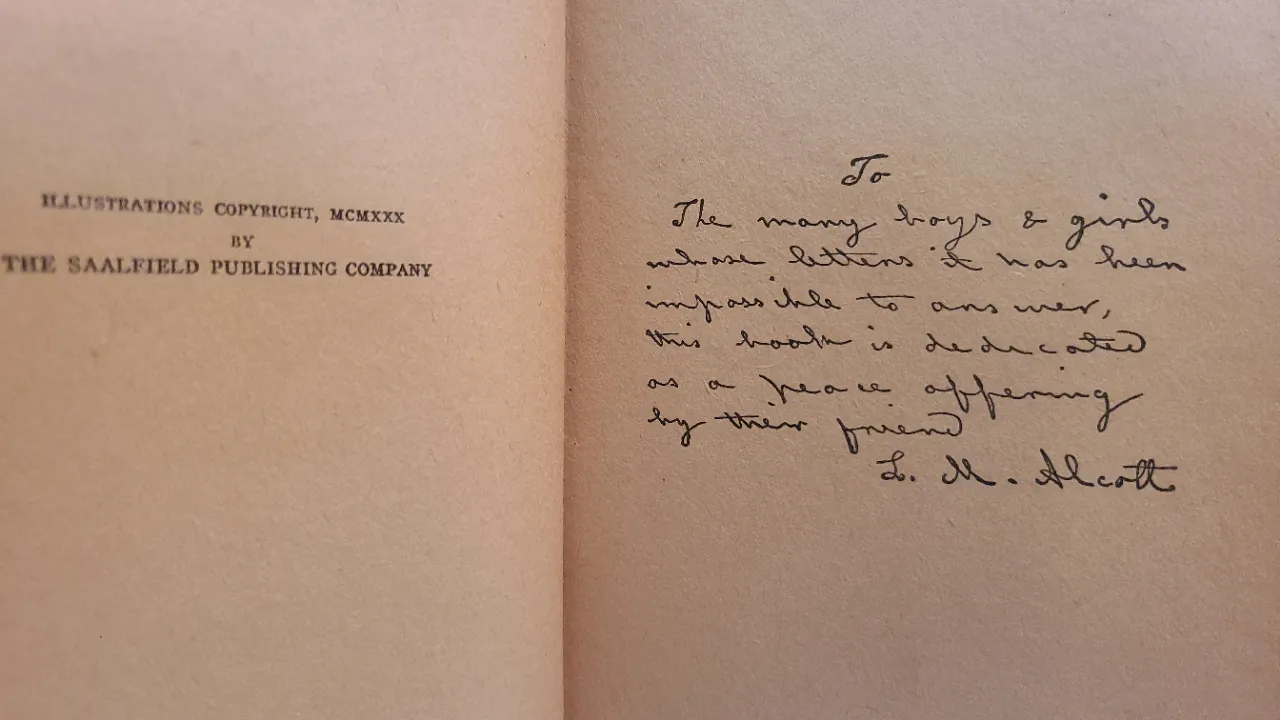 ILLUSTRATIONS COPYRIGHT, MCMXXX
BY
THE SAALFIELD PUBLISHING COMPANY
To
The many boys & girls
whose letters it has been
impossible to answer,
this book is dedicated
as a peace offering
by their friend
L. M. Alcott